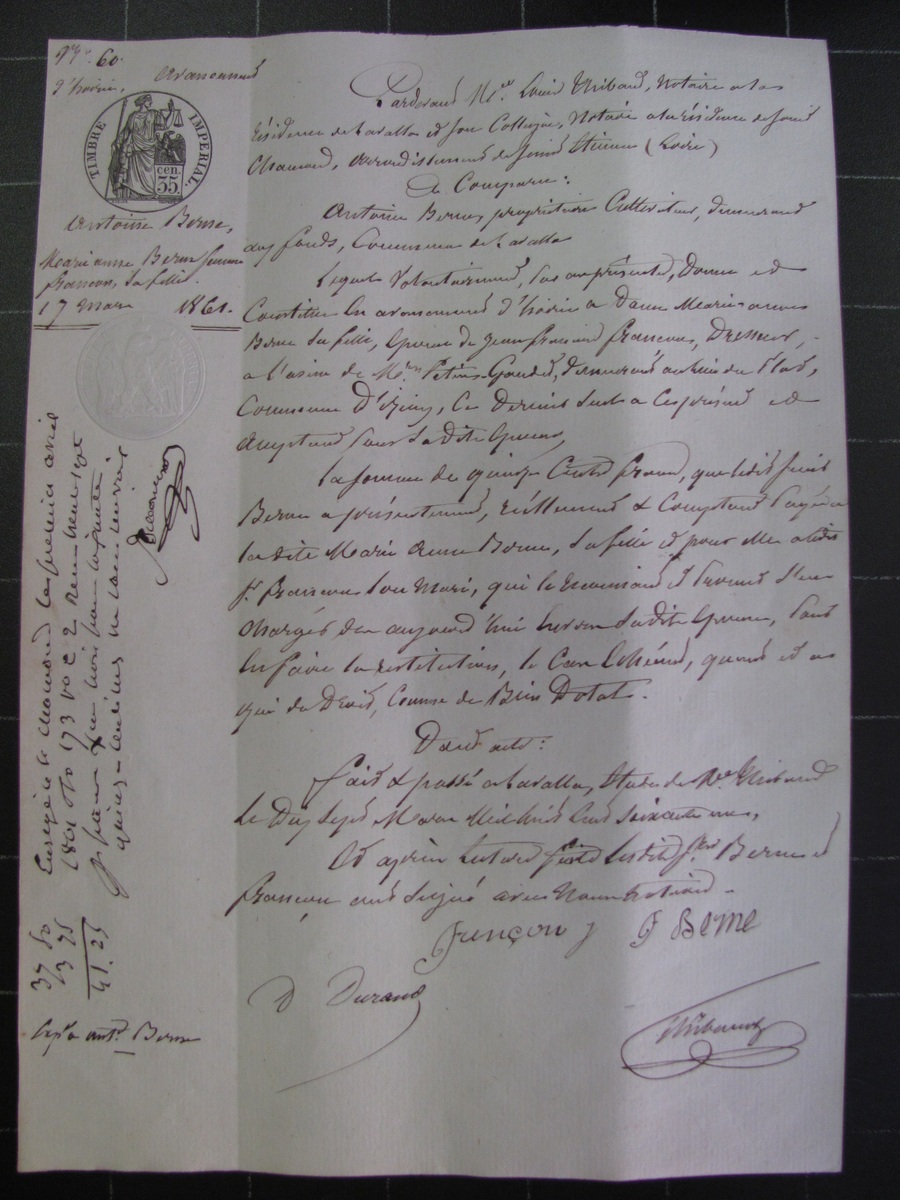 N° 60.
d'hoirie. avancement
TIMBRE IMPERIAL.
cen.
35
Antoine Berne,
Marie anne Berne femme
françon, sa fille.
17 Mars 1861.
Pardevant Me Louis Thibaud, Notaire à la
résidence de Lavalla et son Collègue, Notaire à la résidence de Saint
Chamond, arrondissement de Saint Etienne (Loire)
A Comparu:
Antoine Berne, propriétaire Cultivateur, demeurant
aux fonds, Commune de Lavalla
Lequel Volontairement, par ces présentes, Donne et
Constitue en avancement d'hoirie a Dame Marie anne
Berne sa fille, épouse de Jean françois françon,
a l'usine de Mrs Petin & Gaudet, demeurant au lieu du Plat,
Commune d'Izieux, Ce Dernier ici présent et
acceptant pour sa dite épouse,
La Somme de quinze Cents francs, que ledit sieur
Berne a présentement, réellement & Comptant payée a
la dite Marie anne Berne, sa fille et pour elle audit
sr françon son Mari, qui le reconnait et promet s'en
Charger dès aujourd'hui envers sa dite épouse, pour
en faire la restitution, le Cas échéant, quand et a
qui de Droit, Comme de Bien Dotal.
Dont acte:
fait & passé a Lavalla, étude de Me Thibaud
Le Dix Sept Mars Mil huit Cent soixante un,
Et après lecture faite lesdits srs Berne &
françon ont signé avec Nous Notaires.
françon J F Berne
D Durand
Thibaud
Enregistré à St Chamond le premier avril
1861 fo 173 Vo C 2
37 50
3 75
41. 25
Expon ant. Berne